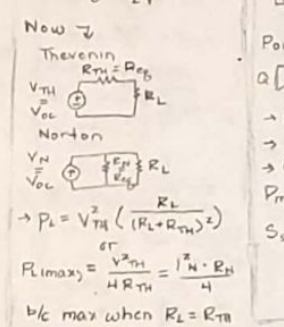 Now
Thevenin
R_TH = Req
V_TH
=
V_OC
R_L
Norton
V_N
=
V_OC
R_N
=
Req
R_L
→ P_L = V²_TH ( R_L / (R_L + R_TH)² )
or
P_L(max) = V²_TH / 4 R_TH = I²_N · R_N / 4
b/c max when R_L = R_TH
Po
Q
→
→
→
P_m
S